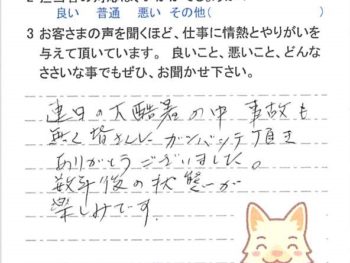 良い 普通 悪い その他( )
3 お客さまの声を聞くほど、仕事に情熱とやりがいを
与えて頂いています。 良いこと、悪いこと、どんな
ささいな事でもぜひ、お聞かせ下さい。
連日の大酷暑の中 事故も
無く皆さんに ガンバッテ頂き
ありがとうございました。
数年後の状態が
楽しみです。